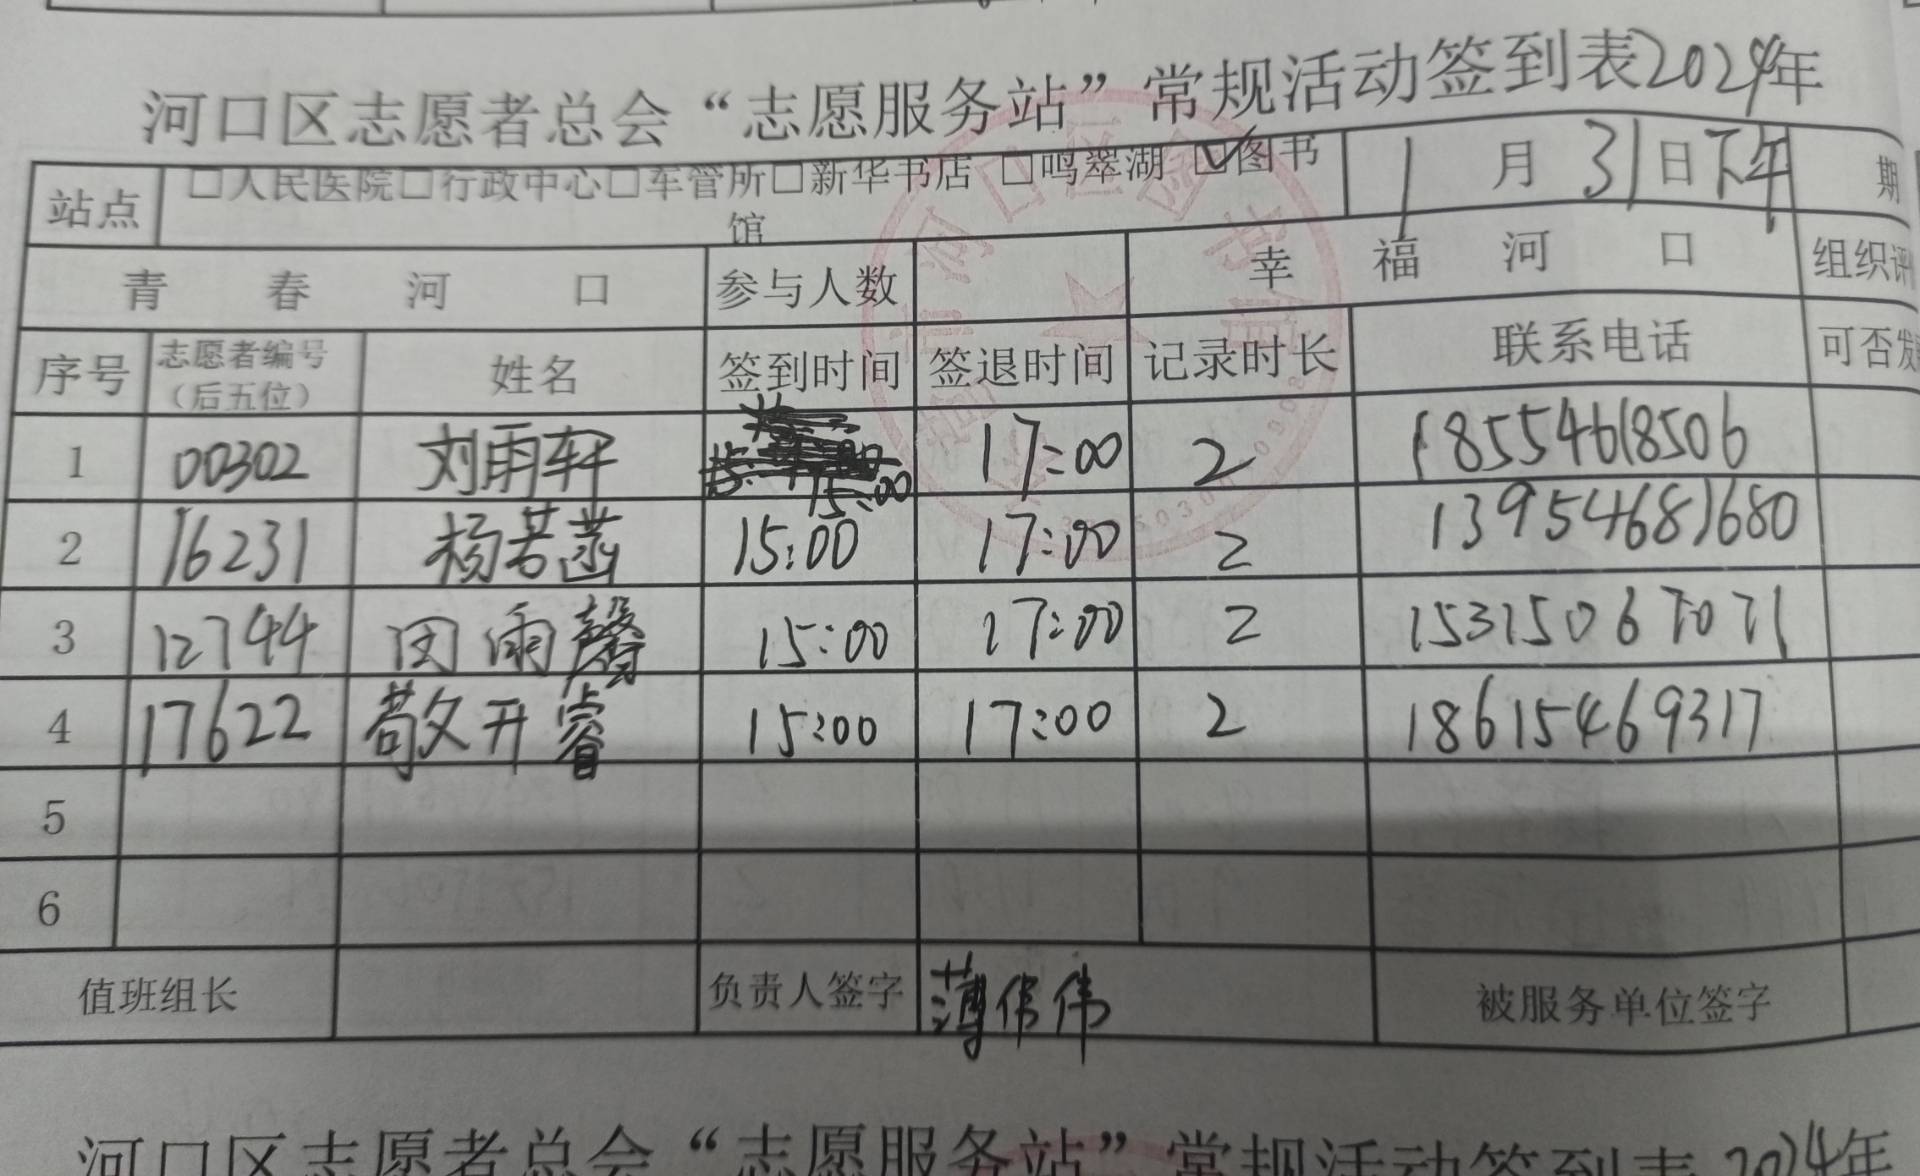 河口区志愿者总会“志愿服务站”常规活动签到表2024年
站点 □人民医院□行政中心□车管所□新华书店 □鸣翠湖 ☑图书馆 1月31日下午 期
青春河口 参与人数 幸福河口 组织评
序号 志愿者编号（后五位） 姓名 签到时间 签退时间 记录时长 联系电话 可否发
1 00302 刘雨轩 15:00 17:00 2 18554618506
2 16231 杨若菡 15:00 17:00 2 13954681680
3 12744 田雨馨 15:00 17:00 2 15315067071
4 17622 苟文开睿 15:00 17:00 2 18615469317
5
6
值班组长 负责人签字 薄伟伟 被服务单位签字
河口区志愿者总会“志愿服务站”常规活动签到表2024年